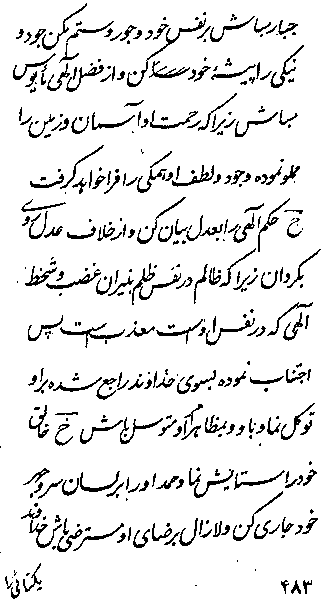 جبار مباش بر نفس خود و جور و ستم مکن جود و
نیکی را پیشهٔ خود کن و از فضل الهی مأیوس
مباش زیرا که رحمت او آسمان و زمین را
مملو نموده وجود و لطف او همگی را فرا خواهد گرفت
خ حکم الهی را بعدل بیان کن و از خلاف عدل روی
بگردان زیرا که ظالم در نفس ظلم بنیران غضب و سخط
الهی که در نفس اوست معذب است پس
اجتناب نموده بسوی خداوند راجع شده براو
توکل نما و باو و بمظاهر او متوسل باش خ خالق
خود را ستایش نما و حمد او را بر لسان سر و جهر
خود جاری کن و لازال برضای او مسترضی باش خداوند
۴۸۳
یکتائی را